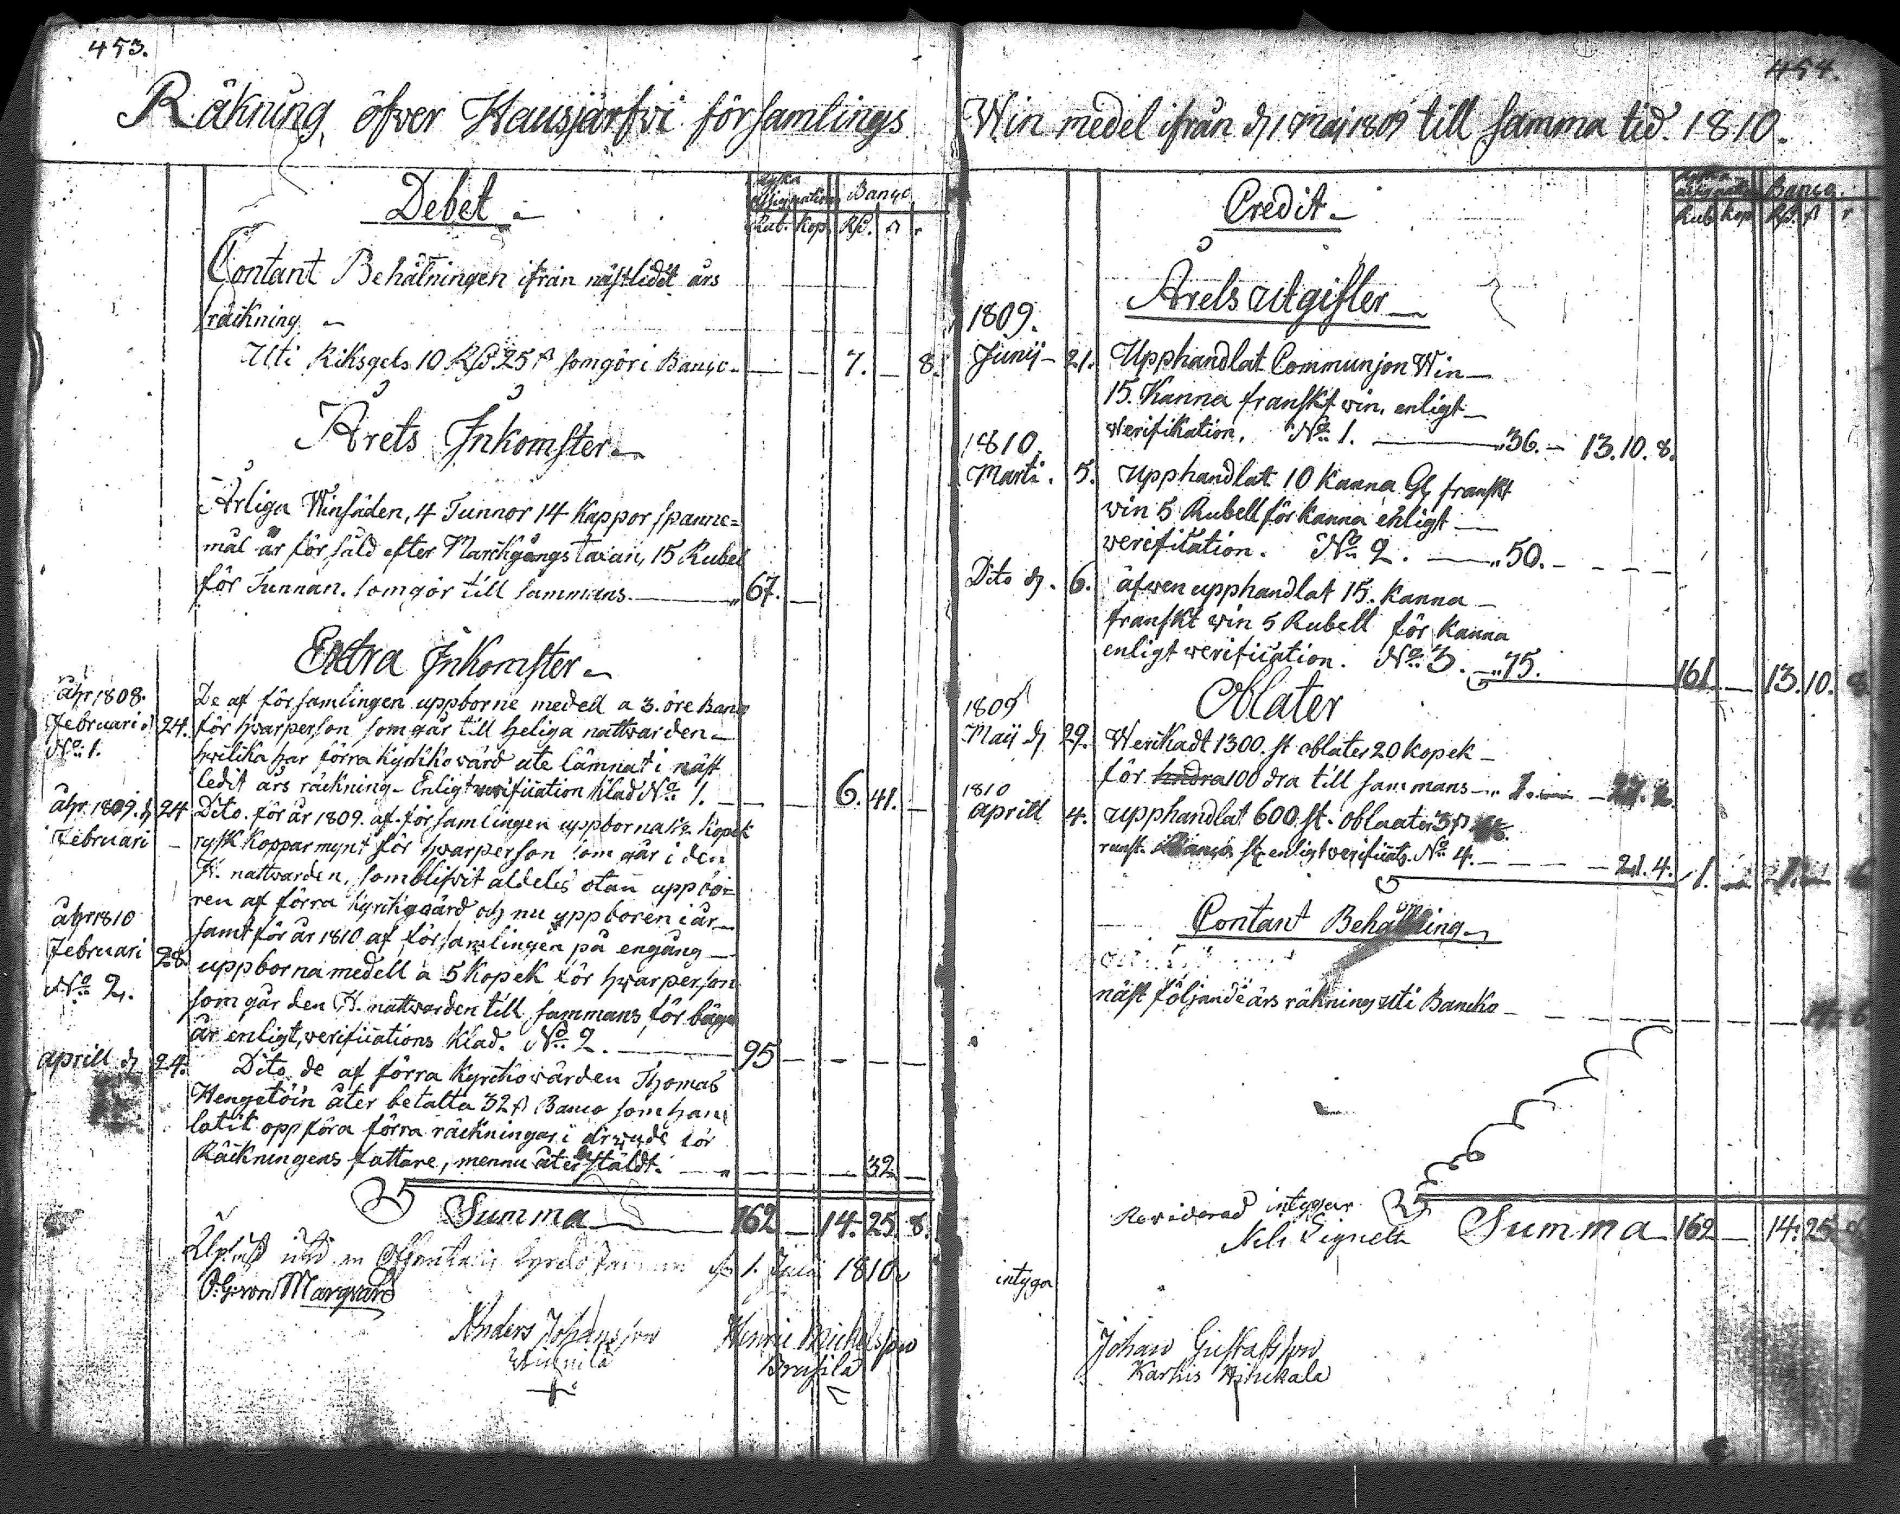 453.
Räkning öfver Hausjärfvi församlings
Debet
Ryska Assignationer Banco
Rub. Kop. Rd. ß r
Contant Behålningen ifrån nästledit års
räckning
Uti Riksgels 10 Rd. 25 ß som gör i Banco 7. — 8.
Årets Inkomster
Årliga Winsäden, 4 Tunnor 14 Kappor spanne=
mål är försåld efter Marckgångs Taxan, 15 Rubel
för Tunnan. som gör till sammans 67.
Extra Inkomster
åhr 1808. De af församlingen uppborne medell a 3. öre Banco
Februari d 24. för hvar person som går till heliga nattwarden
No. 1. hwilcka har förra Kyrckowärd ute lämnat i näst
ledit års räckning - Enligt verification Klad No. 1. 6. 41.
åhr 1809. d 24 Dito. för år 1809. af församlingen uppborna Kopek
Februari rysk Koppar mynt för hvar person som går i den
H. nattwarden, som blifvit aldeles utan uppbör=
ren af förra Kyrckowärd och nu uppboren i år
åhr 1810 samt för år 1810 af församlingen på engång
Februari 28 uppborna medell a 5 Kopek för hvar person
No. 2. som går den H. nattwarden till sammans för båga
år enligt verifications Klad. No. 2. 95
Aprill d 24. Dito de af förra Kyrckowärden Thomas
Hengetöin åter betalta 32 ß Banco som han
latit oppföra förra räckningar i för
Räckningens fattare, men nu återstäldt. 32
Summa 162 — 14. 25. 8.
1. 1810
Marqvard
Anders Johansson
Henric Michelsson
454.
Win medel ifrån d 1 Maj 1809 till samma tid 1810.
Credit
Ryska Assignationer Banco.
Rub. Kop. Rd. ß r
Årets utgifter
1809.
Junij 21. Upphandlat Communjon Win
15. Kanna franskt win, enligt
1810. Werifikation. No. 1. 36. — 13. 10. 8.
Marti. 5. Upphandlat 10 Kanna franskt
win 5 Rubell för kanna enligt
verification. No. 2. 50.
Dito d. 6. äfwen upphandlat 15. kanna
franskt win 5 Rubell för kanna
enligt verification. No. 3. 75. 161 — 13. 10. 8
Oblater
1809
Maij d 29. Werckadt 1300. st oblater 20 kopek
för 100 dra till sammans
1810
Aprill 4. upphandlat 600 st. oblater 3 ß
enligt verificat. No. 4. 21. 4. 1.
Contant Behållning
näst följande års räkning uti Bancko
Reviderad intygar
Nils Lignell
Summa 162 — 14. 25.
intyga
Johan Gustafsson
Karhis